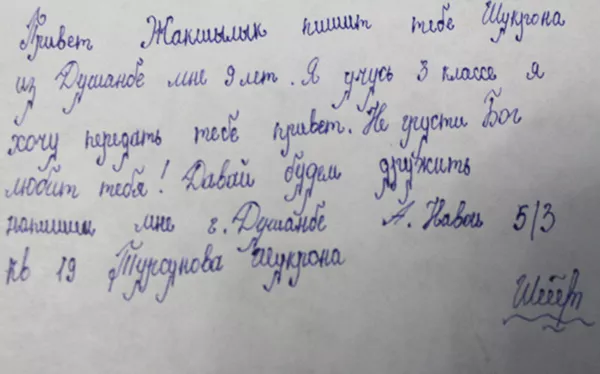 Привет Жакшылык пишит тебе Шукрона
из Душанбе мне 9 лет. Я учусь 3 классе я
хочу передать тебе привет. Не грусти Бог
любит тебя! Давай будем дружить
напишиш мне г. Душанбе А. Навои 5/3
кв 19 Турсунова Шукрона